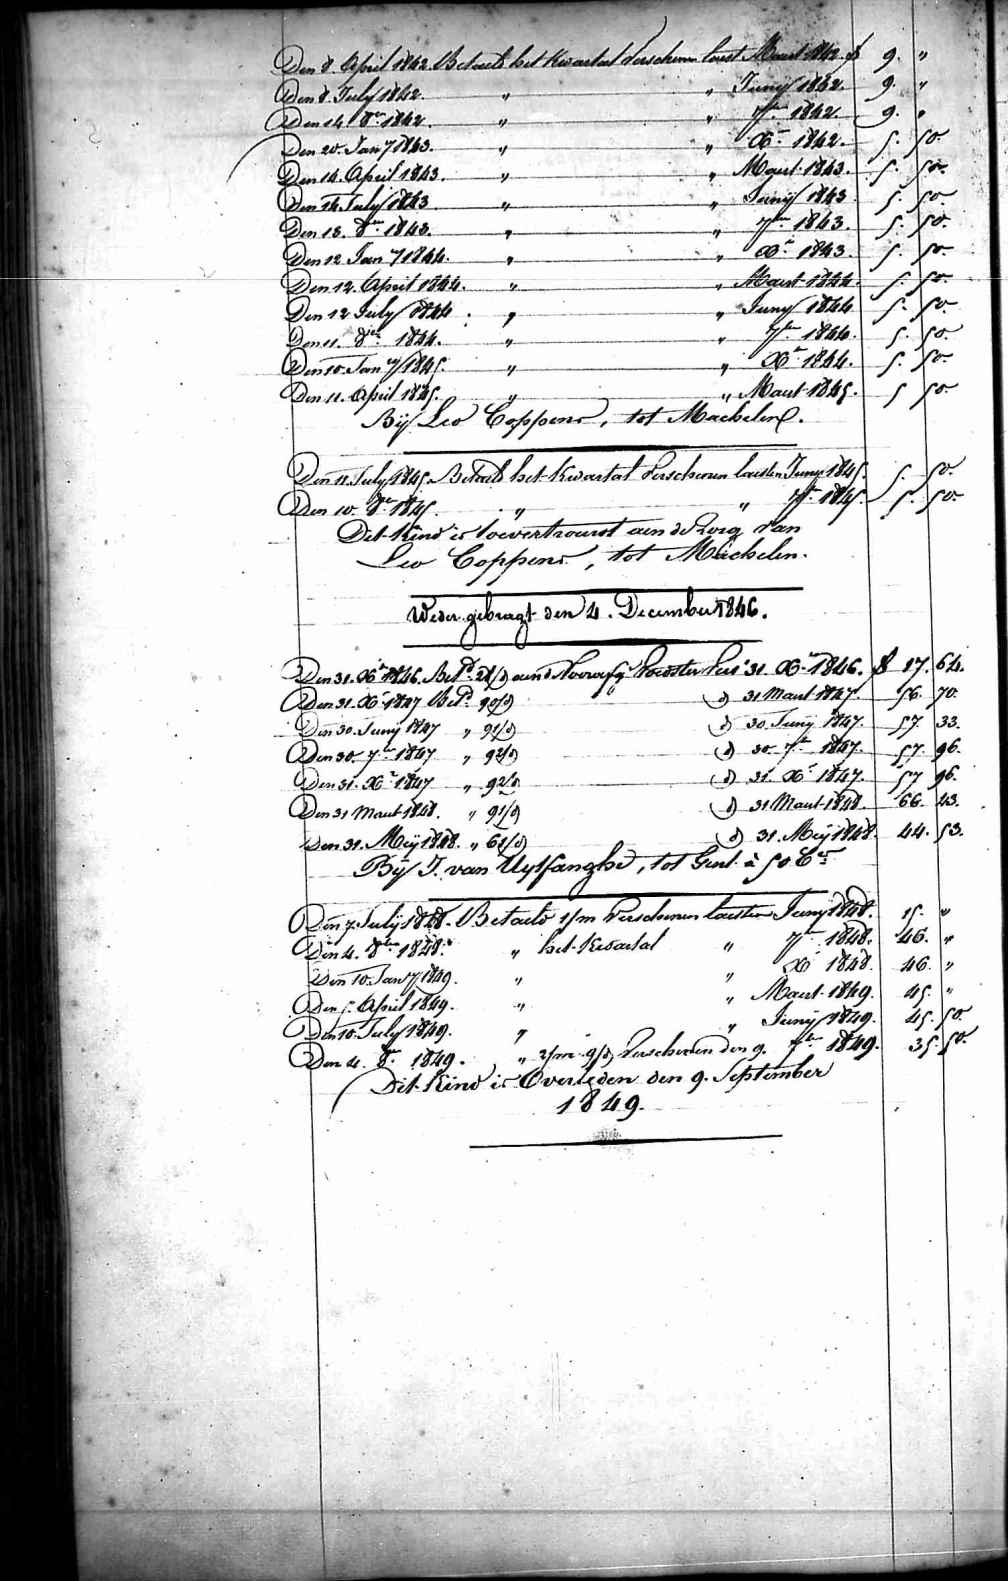 Den 8. April 1842. Betaeld het kwartal verschenen laest Maert 1842. f 9. "
Den 8. July 1842. " " Juny 1842. 9. "
Den 14. 8er 1842. " " 7er 1842. 9. "
Den 20. Jany 1843. " " Xr 1842. 5. 50.
Den 14. April 1843. " " Maert 1843. 5. 50.
Den 14 July 1843 " " Juny 1843 5. 50.
Den 13. 8er 1843. " " 7er 1843. 5. 50.
Den 12 Jany 1844. " " Xr 1843. 5. 50.
Den 12. April 1844. " " Maert 1844. 5. 50.
Den 12 July 1844 " " Juny 1844 5. 50.
Den 11. 8er 1844. " " 7er 1844. 5. 50.
Den 10. Jany 1845. " " Xr 1844. 5. 50.
Den 11. April 1845. " " Maert 1845. 5 50.
Bij Leo Coppens, tot Machelen.
Den 11. July 1845. Betaeld het kwartal verschenen laesten Juny 1845. 5. 50.
Den 10. 8er 1845. " " 7er 1845. 5. 50.
Dit kind is toevertrouwt aen de Zorg van
Leo Coppens, tot Machelen.
Weder gebragt den 4. December 1846.
Den 31. Xr 1846. Betd 28/d aen d 31. Xr 1846. f 17. 64.
Den 31. Xr 1847 Betd 90/d d) 31 Maert 1847. 56. 70.
Den 30. Juny 1847 " 91/d d) 30 Juny 1847. 57. 33.
Den 30. 7er 1847 " 92/d d) 30. 7er 1847. 57. 96.
Den 31. Xr 1847 " 92/d d) 31. Xr 1847. 57 96.
Den 31 Maert 1848. " 91/d d) 31 Maert 1848. 66. 23.
Den 31. Mey 1848. " 61/d d) 31. Mey 1848. 44. 53.
Bij J. van Uytfanghe, tot Gent à 50 Cen
Den 7. July 1848. Betaeld 1/m verschenen laesten Juny 1848. 15. "
Den 4. 8er 1848. " het kwartal " 7er 1848. 46. "
Den 10. Jany 1849. " " Xr 1848. 46. "
Den 5. April 1849. " " Maert 1849. 45. "
Den 10. July 1849. " " Juny 1849. 45. 50.
Den 4. 8er 1849. " 2/m 9/d verschenen den 9. 7er 1849. 35. 50.
Dit Kind is Overleden den 9. September
1849.